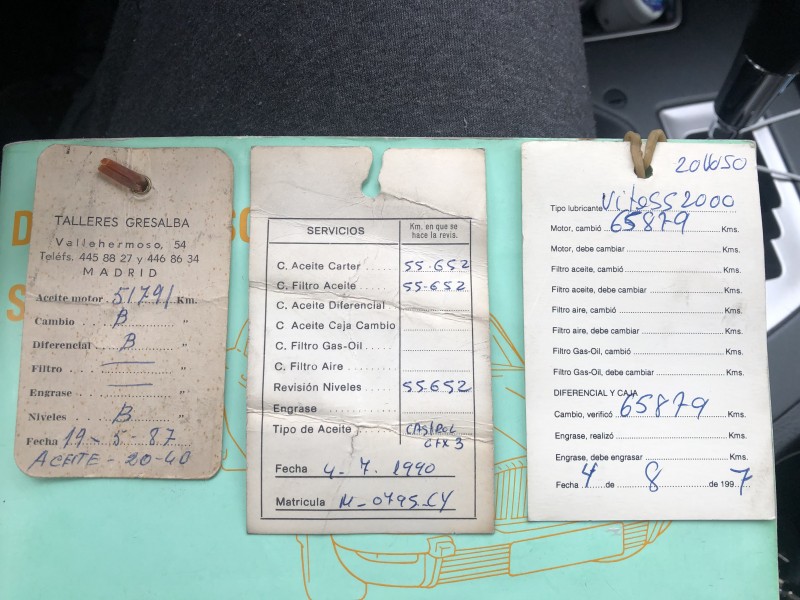 TALLERES GRESALBA
Vallehermoso, 54
Teléfs. 445 88 27 y 446 86 34
MADRID
Aceite motor 51791 Km.
Cambio B "
Diferencial B "
Filtro — "
Engrase — "
Niveles B "
Fecha 19-5-87
ACEITE-20-40
SERVICIOS Km. en que se hace la revis.
C. Aceite Carter 55.652
C. Filtro Aceite 55.652
C. Aceite Diferencial
C. Aceite Caja Cambio
C. Filtro Gas-Oil
C. Filtro Aire
Revisión Niveles 55.652
Engrase
Tipo de Aceite CASTROL
GTX 3
Fecha 4-7-1990
Matricula M-0795-CY
20W50
Tipo lubricante Vitess 2000
Motor, cambió 65879 Kms.
Motor, debe cambiar Kms.
Filtro aceite, cambió Kms.
Filtro aceite, debe cambiar Kms.
Filtro aire, cambió Kms.
Filtro aire, debe cambiar Kms.
Filtro Gas-Oil, cambió Kms.
Filtro Gas-Oil, debe cambiar Kms.
DIFERENCIAL Y CAJA
Cambio, verificó 65879 Kms.
Engrase, realizó Kms.
Engrase, debe engrasar Kms.
Fecha 4 de 8 de 1997